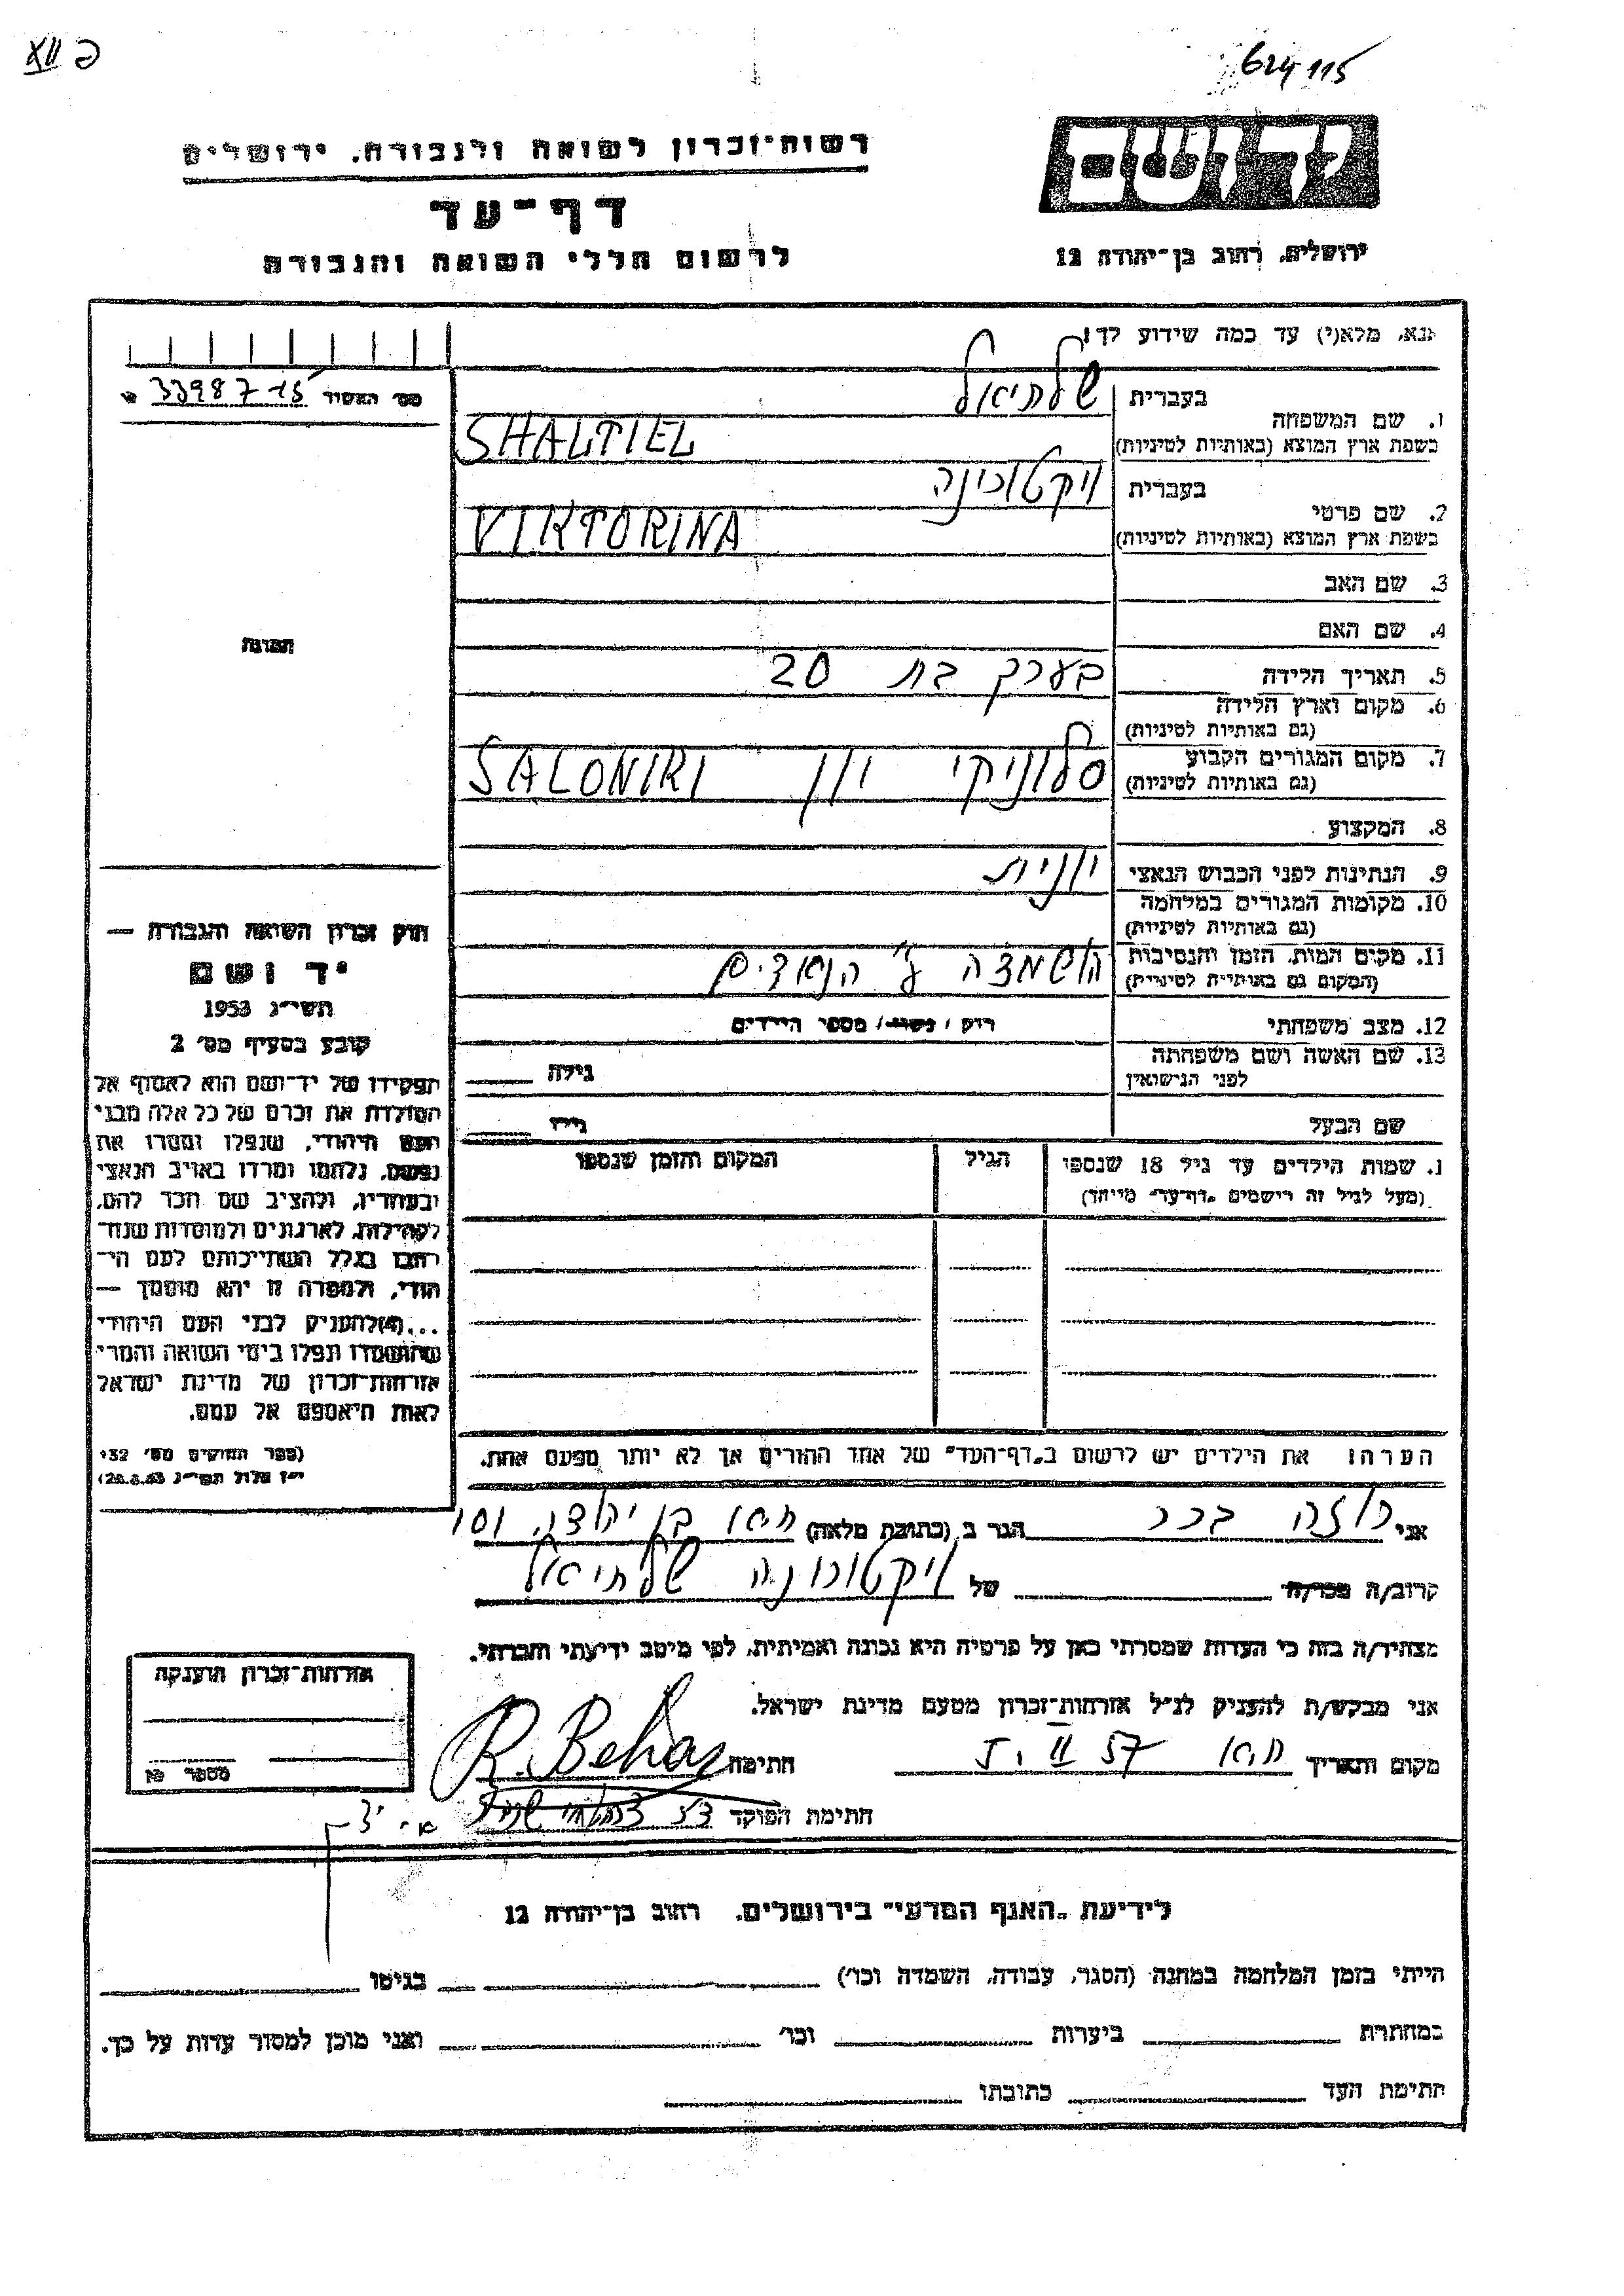 XII כ
624 115
רשות־זכרון לשואה ולגבורה, ירושלים
דף־עד
לרשום חללי השואה והגבורה
יד ושם
ירושלים, רחוב בן־יהודה 12
אנא, מלא(י) עד כמה שידוע לך!
מס׳ האשיד 33987 15
1. שם המשפחה
בעברית שלתיאל
בשפת ארץ המוצא (באותיות לטיניות) SHALTIEL
2. שם פרטי
בעברית ויקטורינה
בשפת ארץ המוצא (באותיות לטיניות) VIKTORINA
3. שם האב
4. שם האם
5. תאריך הלידה בערך בת 20
6. מקום וארץ הלידה
(גם באותיות לטיניות)
7. מקום המגורים הקבוע סלוניקי יון SALONIKI
(גם באותיות לטיניות)
8. המקצוע
9. הנתינות לפני הכבוש הנאצי יונית
10. מקומות המגורים במלחמה
(גם באותיות לטיניות)
11. מקום המות, הזמן והנסיבות הושמדה ע״י הנאצים
(המקום גם באותיות לטיניות)
12. מצב משפחתי רוק / נשוי / מספר הילדים
13. שם האשה ושם משפחתה
לפני הנישואין גילה
שם הבעל גילו
1. שמות הילדים עד גיל 18 שנספו הגיל המקום והזמן שנספו
(מעל לגיל זה רישמים „דף־עד״ מייחד)
הערה: את הילדים יש לרשום ב„דף־העד״ של אחד ההורים אך לא יותר מפעם אחת.
תמונה
חוק זכרון השואה והגבורה —
יד ושם
תשי״ג 1953
קובע בסעיף מס׳ 2
תפקידו של יד־ושם הוא לאסוף אל
המולדת את זכרם של כל אלה מבני
העם היהודי, שנפלו ומסרו את
נפשם, נלחמו ומרדו באויב הנאצי
ובעוזריו, ולהציב שם וזכר להם,
לקהילות, לארגונים ולמוסדות שנח־
רבו בגלל השתייכותם לעם הי־
הודי, ולמטרה זו יהא מוסמך —
...(4) להעניק לבני העם היהודי
שהושמדו ונפלו בימי השואה והמרי
אזרחות־זכרון של מדינת ישראל
לאות היאספם אל עמם.
(ספר החוקים מס׳ 132
י״ז אלול תשי״ג 28.8.53)
אני רוזה בכר הגר ב (כתובת מלאה) יהודה
קרוב/ה מכר/ה של ויקטורינה שלתיאל
מצהיר/ה בזה כי העדות שמסרתי כאן על פרטיה היא נכונה ואמיתית, לפי מיטב ידיעתי והכרתי.
אני מבקש/ת להעניק לנ״ל אזרחות־זכרון מטעם מדינת ישראל.
מקום ותאריך 5. II 57 חתימה R. Behar
חתימת הפוקד
אזרחות־זכרון הוענקה
מספר
לידיעת „האגף המדעי״ בירושלים, רחוב בן־יהודה 12
הייתי בזמן המלחמה במחנה (הסגר, עבודה, השמדה וכו׳) בגיטו
במחתרת ביערות וכו׳ ואני מוכן למסור עדות על כך.
חתימת העד כתובתו